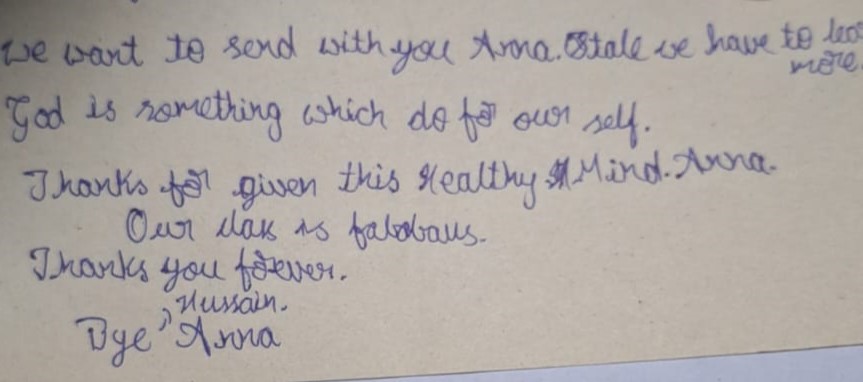 we want to send with you Anna. Stale we have to
more.
God is something which do for our self.
Thanks for given this Healthy Mind. Anna.
Our is
Thanks you forever.
Hussain.
Bye, Anna